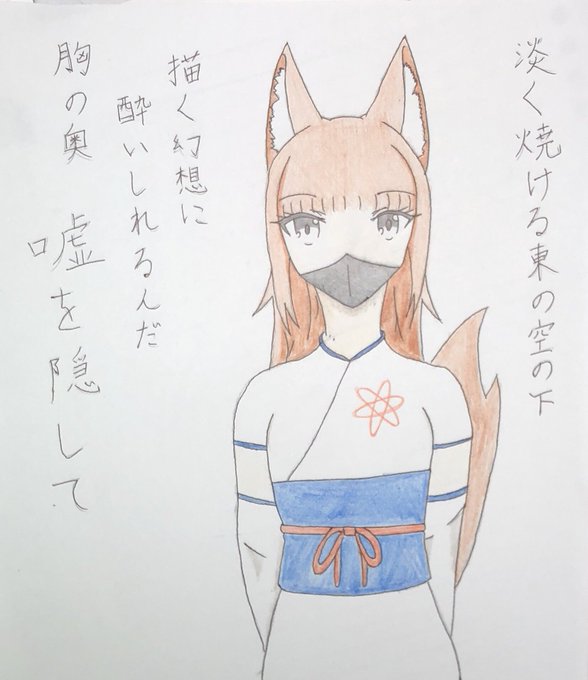 淡く焼ける東の空の下
描く幻想に
酔いしれるんだ
胸の奥 嘘を隠して